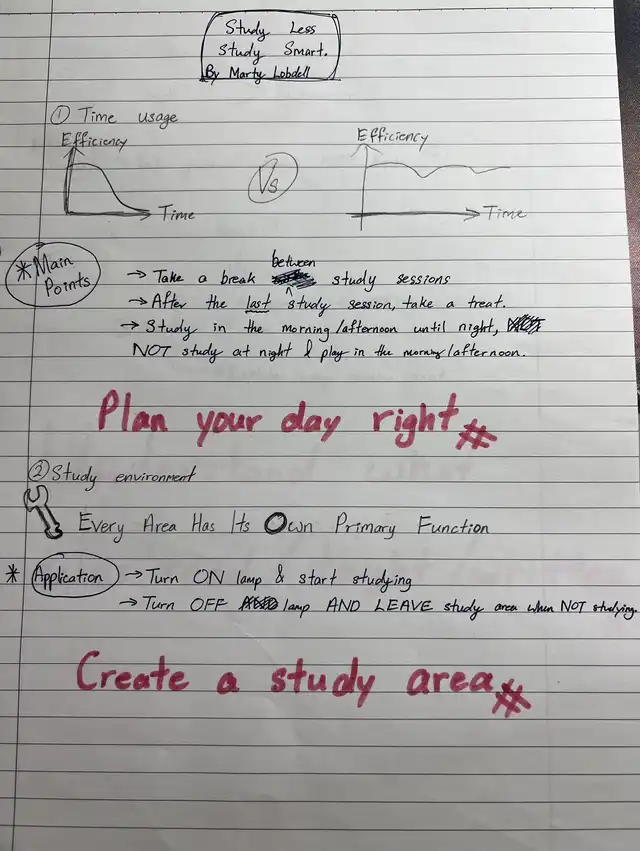 Study Less
Study Smart.
By Marty Lobdell
① Time usage
Efficiency
Time
Vs
Efficiency
Time
* Main Points
→ Take a break between study sessions
→ After the last study session, take a treat.
→ Study in the morning/afternoon until night,
NOT study at night & play in the morning/afternoon.
Plan your day right #
② Study environment
Every Area Has Its Own Primary Function
* Application → Turn ON lamp & start studying
→ Turn OFF lamp AND LEAVE study area when NOT studying.
Create a study area #